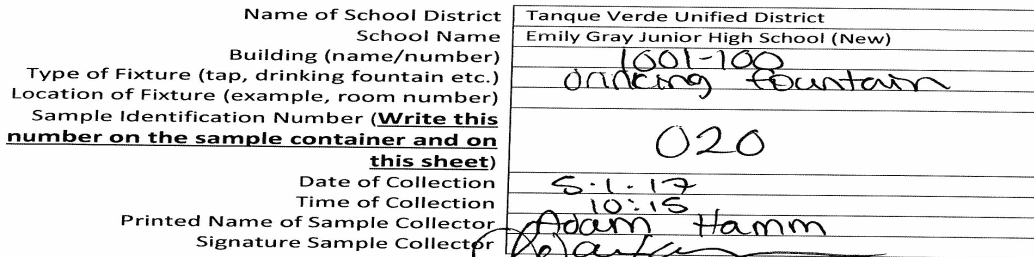 Name of School District Tanque Verde Unified District
School Name Emily Gray Junior High School (New)
Building (name/number) 1001-100
Type of Fixture (tap, drinking fountain etc.) drinking fountain
Location of Fixture (example, room number)
Sample Identification Number (Write this
number on the sample container and on
this sheet) 020
Date of Collection 5.1.17
Time of Collection 10:15
Printed Name of Sample Collector Adam Hamm
Signature Sample Collector